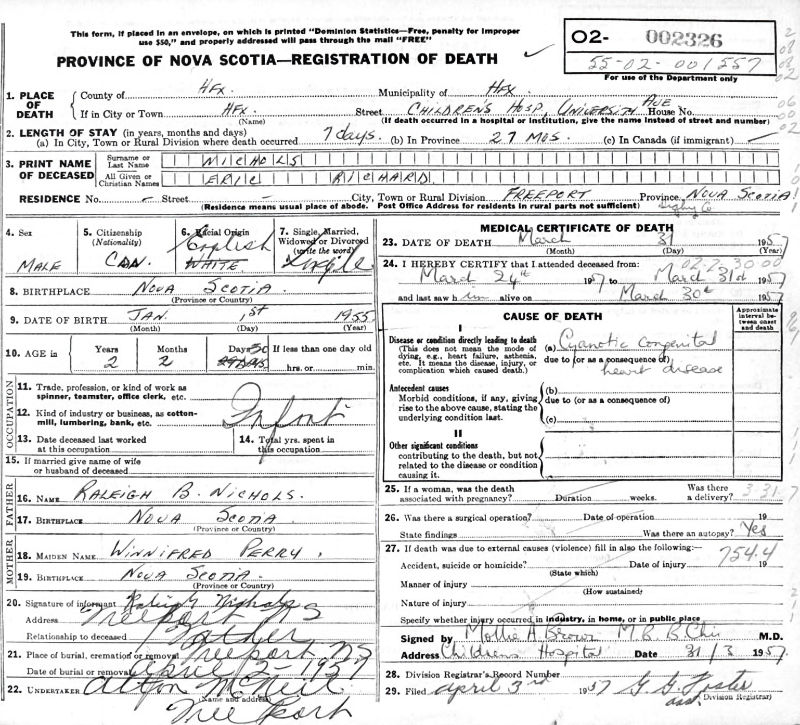 This form, if placed in an envelope, on which is printed "Dominion Statistics—Free, penalty for improper
use $50," and properly addressed will pass through the mail "FREE"
PROVINCE OF NOVA SCOTIA—REGISTRATION OF DEATH
02- 002326
55-02-001557
For use of the Department only
1. PLACE OF DEATH
County of HFX. Municipality of HFX.
If in City or Town HFX. Street CHILDREN'S HOSP, UNIVERSITY AVE House No.
(Name) (If death occurred in a hospital or institution, give the name instead of street and number)
2. LENGTH OF STAY (in years, months and days)
(a) In City, Town or Rural Division where death occurred 7 days. (b) In Province 27 MOS. (c) In Canada (if immigrant)
3. PRINT NAME OF DECEASED
Surname or Last Name NICHOLS
All Given or Christian Names ERIC RICHARD
RESIDENCE No. - Street - City, Town or Rural Division FREEPORT Province NOVA SCOTIA
(Residence means usual place of abode. Post Office Address for residents in rural parts not sufficient) Digby Co
4. Sex MALE
5. Citizenship (Nationality) CDN.
6. Racial Origin English WHITE
7. Single, Married, Widowed or Divorced (write the word) Single
8. BIRTHPLACE NOVA SCOTIA
(Province or Country)
9. DATE OF BIRTH JAN. 1st 1955
(Month) (Day) (Year)
10. AGE in Years 2 Months 2 Days 30 If less than one day old
hrs. or min.
OCCUPATION
11. Trade, profession, or kind of work as spinner, teamster, office clerk, etc.
12. Kind of industry or business, as cotton-mill, lumbering, bank, etc. Infant
13. Date deceased last worked at this occupation
14. Total yrs. spent in this occupation
15. If married give name of wife or husband of deceased
FATHER
16. NAME RALEIGH B. NICHOLS.
17. BIRTHPLACE NOVA SCOTIA
(Province or Country)
MOTHER
18. MAIDEN NAME WINNIFRED PERRY.
19. BIRTHPLACE NOVA SCOTIA.
(Province or Country)
20. Signature of informant Raleigh Nichols
Address Freeport NS
Relationship to deceased Father
21. Place of burial, cremation or removal Freeport NS
Date of burial or removal April 2 - 1957
22. UNDERTAKER Alton McNeill
(Name and address)
Freeport
MEDICAL CERTIFICATE OF DEATH
23. DATE OF DEATH March 31 1957
(Month) (Day) (Year)
24. I HEREBY CERTIFY that I attended deceased from: 02-2-30 00
March 24th 1957 to March 31st 1957
and last saw him alive on March 30th 1957
CAUSE OF DEATH
Approximate interval between onset and death
I
Disease or condition directly leading to death
(This does not mean the mode of dying, e.g., heart failure, asthenia, etc. It means the disease, injury, or complication which caused death.)
(a) Cyanotic congenital
due to (or as a consequence of) heart disease
Antecedent causes
Morbid conditions, if any, giving rise to the above cause, stating the underlying condition last.
(b)
due to (or as a consequence of)
(c)
II
Other significant conditions
contributing to the death, but not related to the disease or condition causing it.
25. If a woman, was the death associated with pregnancy? Duration weeks. Was there a delivery? 3-31-7
26. Was there a surgical operation? Date of operation 19
State findings Was there an autopsy? Yes
27. If death was due to external causes (violence) fill in also the following:— 754.4
Accident, suicide or homicide? Date of injury 19
(State which)
Manner of injury
(How sustained)
Nature of injury
Specify whether injury occurred in industry, in home, or in public place
Signed by Mollie A. Brown M.B. B.Chir M.D.
Address Childrens Hospital Date 31/3 1957.
28. Division Registrar's Record Number
29. Filed April 3rd 1957 G. G. Foster
asst. Division Registrar)